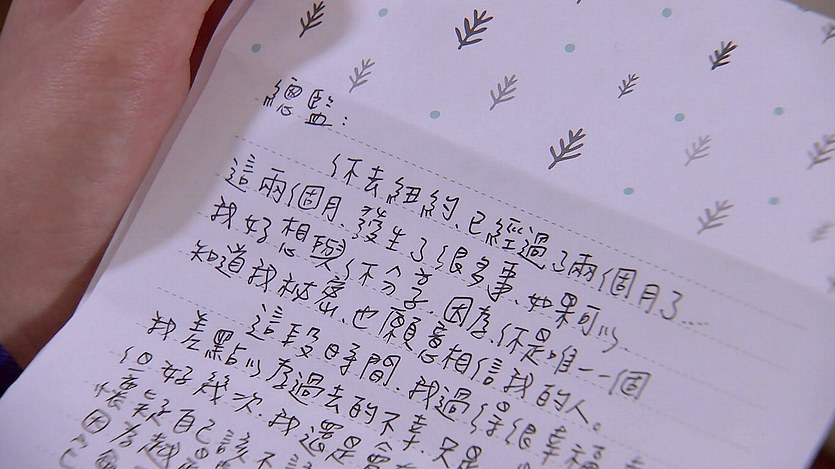 總監:
你去紐約、已經過了兩個月了...
這兩個月、發生了很多事、如果可以
我好想與你分享、因為、你是唯一一個
知道我秘密、也願意相信我的人。
這段時間、我過得很幸福
我差點以為過去的不幸、只是
但好幾次、我還是會
懷疑自己該不
因為越